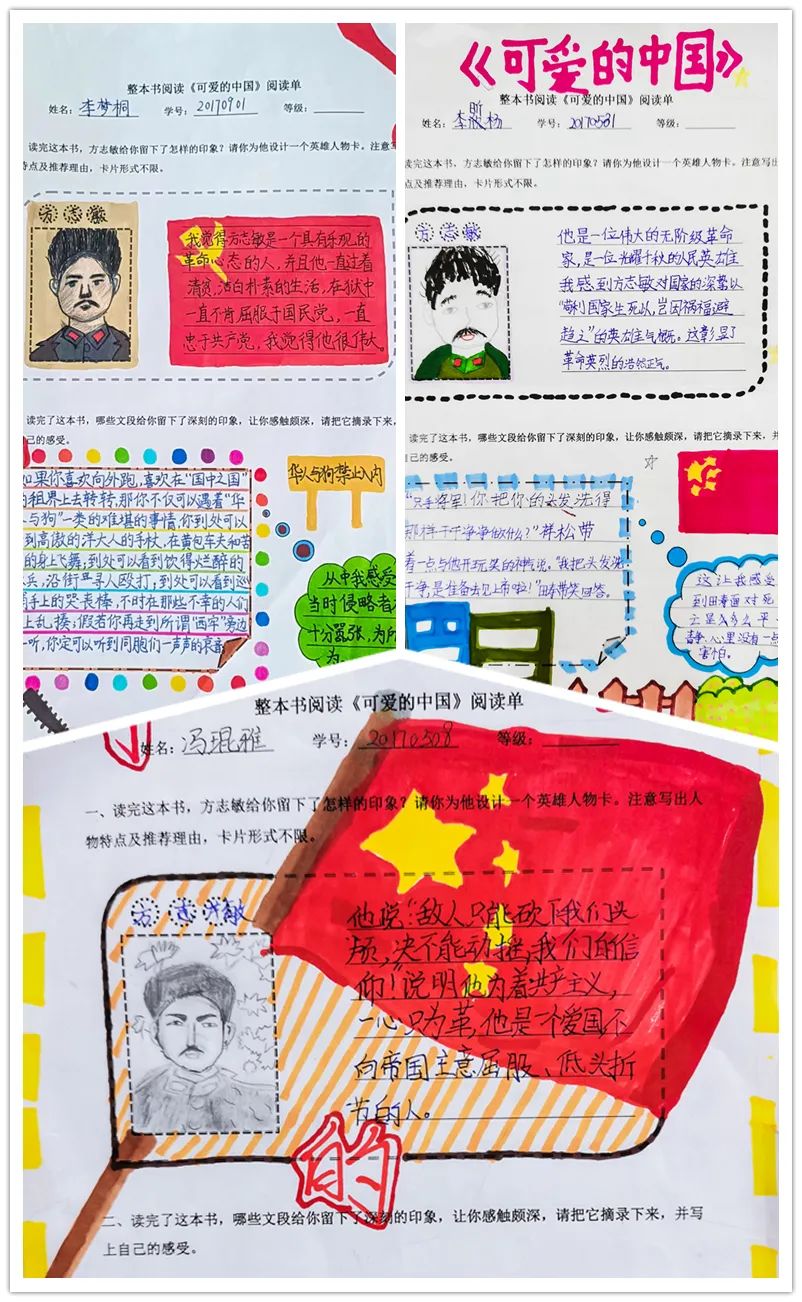 整本书阅读《可爱的中国》阅读单
姓名：李梦桐 学号：20170901 等级：
读完这本书，方志敏给你留下了怎样的印象？请你为他设计一个英雄人物卡。注意写
特点及推荐理由，卡片形式不限。
方志敏
我觉得方志敏是一个具有乐观的
革命心态的人，并且他一直过着
清贫，洁白朴素的生活，在狱中
一直不肯屈服于国民党，一直
忠于共产党，我觉得他很伟大。
读完了这本书，哪些文段给你留下了深刻的印象，让你感触颇深，请把它摘录下来，
己的感受。
如果你喜欢向外跑，喜欢在"国中之国"
的租界上去转转，那你不仅可以遇着"华
人与狗"一类的难堪的事情，你到处可以
到高傲的洋大人的手杖，在黄包车夫和苦
的身上飞舞，到处可以看到饮得烂醉的
兵，沿街寻人殴打，到处可以看到巡
手上的哭丧棒，不时在那些不幸的人们
上乱揍，假若你再走到所谓"西牢"旁边
一听，你定可以听到同胞们一声声的哀音
华人与狗禁止入内
从中我感受
当时侵略者
十分嚣张，为所
为。
《可爱的中国》
整本书阅读《可爱的中国》阅读单
姓名： 学号：20170531 等级：
读完这本书，方志敏给你留下了怎样的印象？请你为他设计一个英雄人物卡。注意写出
点及推荐理由，卡片形式不限。
方志敏
他是一位伟大的无阶级革命
家，是一位光耀千秋的人民英雄
我感到方志敏对国家的深挚以
利国家生死以，岂因祸福避
趋之"的英雄主气概。这彰显了
革命英烈的浩然正气。
读完了这本书，哪些文段给你留下了深刻的印象，让你感触颇深，请把它摘录下来，并
己的感受。
"只手将军！你把你的头发洗得
那样干干净净做什么？"祥松带
着一点与他开玩笑的神气说。"我把头发洗
干净，是准备去见上帝啦！"田寿带笑回答。
这让我感受
到田寿面对死
亡是多么平
静，心里没有一点
害怕。
整本书阅读《可爱的中国》阅读单
姓名：冯琨雅 学号：20170508 等级：
一、读完这本书，方志敏给你留下了怎样的印象？请你为他设计一个英雄人物卡。注意写出人
物特点及推荐理由，卡片形式不限。
方志敏
他说："敌人只能砍下我们头
颅，决不能动摇，我们的信
仰！"说明他为着共产主义，
一心只为革，他是一个爱国不
向帝国主意屈服、低头折
节的人。
的
二、读完了这本书，哪些文段给你留下了深刻的印象，让你感触颇深，请把它摘录下来，并写
上自己的感受。